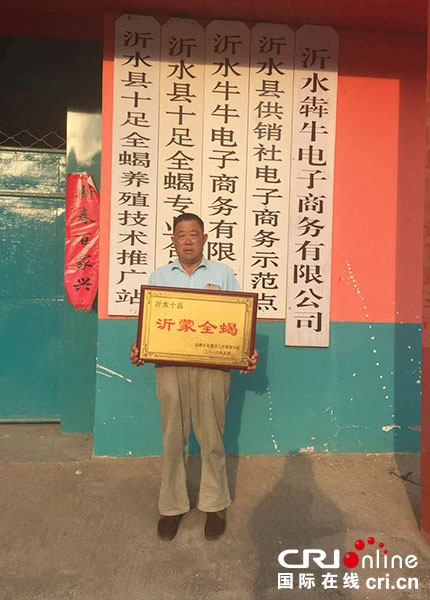 沂水县十足全蝎养殖技术推广站
沂水县十足全蝎专
沂水牛牛电子商务有限
沂水县供销社电子商务示范点
沂水犇牛电子商务有限公司
春百家兴
沂水十品
沂蒙全蝎
CRI online
国际在线 cri.cn